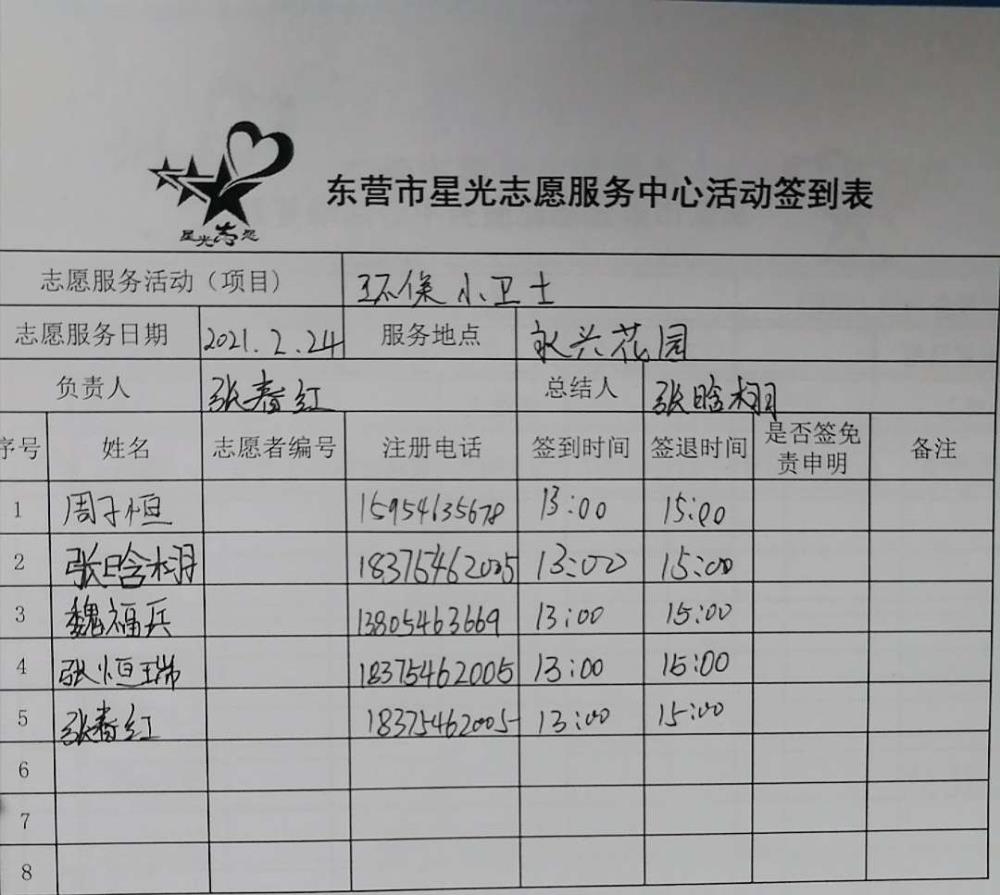 星光志愿
东营市星光志愿服务中心活动签到表
志愿服务活动（项目） 环保小卫士
志愿服务日期 2021.2.24 服务地点 永兴花园
负责人 张春红 总结人 张晗栩
序号 姓名 志愿者编号 注册电话 签到时间 签退时间 是否签免 备注
责申明
1 周子恒 15954635678 13:00 15:00
2 张晗栩 18375462005 13:00 15:00
3 魏福兵 13805463669 13:00 15:00
4 张恒瑞 18375462005 13:00 15:00
5 张春红 18375462005 13:00 15:00
6
7
8